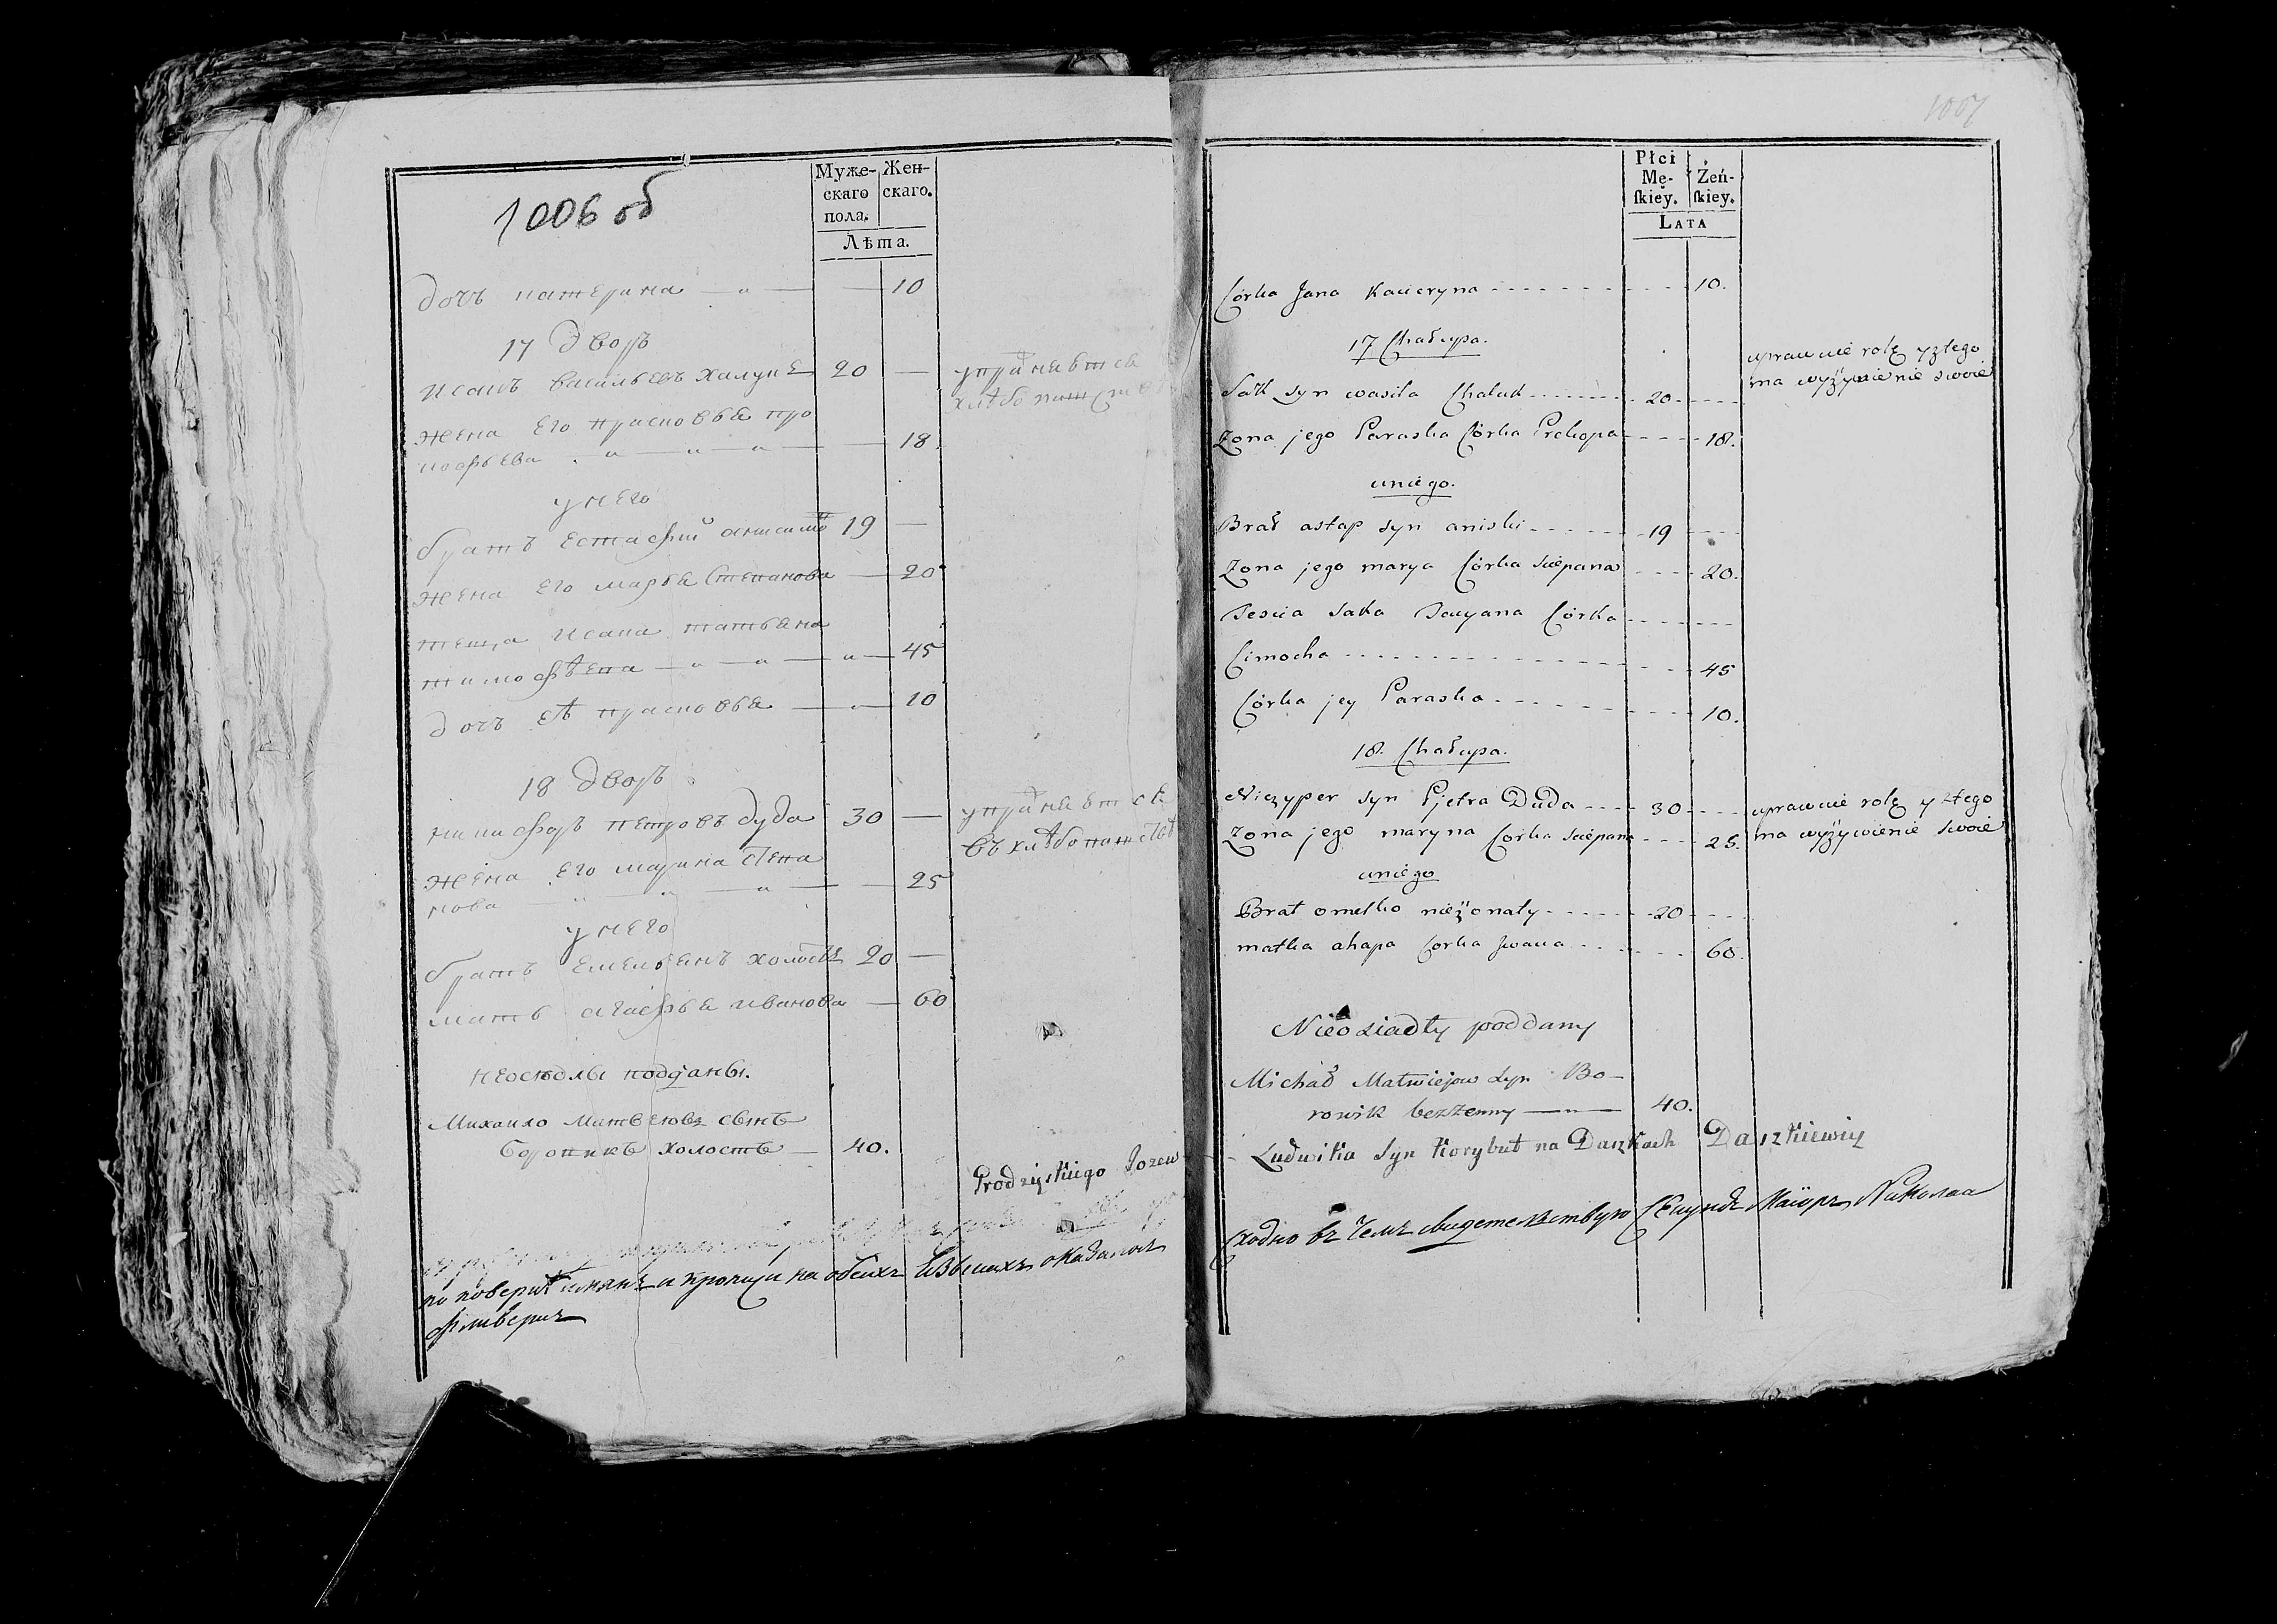 1006 об
Муже-
скаго
пола.
Жен-
скаго.
Лѣта.
дочь катерина — „ — — 10
17 дворъ
Исакъ васильевъ халуке 20 — упражняется
жена его прасковья про
кофьева „ — „ — „ — — 18.
у него
братъ естафий 19 —
жена его марья степанова — 20
теща исака татьяна
тимофѣена — „ — „ — „ — 45
дочь еѣ прасковья — „ — 10
18 дворъ
никифоръ петровъ дуда 30 — упражняется
въ хлѣбопашествѣ
жена его марина степа
нова — „ — „ — „ — — 25
у него
братъ емельянъ холостъ 20 —
мать агафья иванова — 60
неоседлы подданы.
Михайло Матвеювъ сынъ
боровикъ холостъ — 40.
по и на обеихъ Языкахъ оказалось
1007
Płci
Mę-
ſkiey.
Żeń-
ſkiey.
Lata
Córka Jana Kacieryna - - - - - 10.
17 Chałupa.
uprawuie rolę y ztego
ma wyżywienie swoie
Sak syn wasila Chaluk - - - - 20 - - -
Zona jego Paraska Córka Prokopa - - - 18.
uniego.
Brat astap syn aniski - - - - 19 - - -
Zona jego marya Córka sciepana - - - 20.
Tescia saka Taciyana Córka - - - - -
Cimocha - - - - - - - - 45
Córka jey Paraska - - - - - - 10.
18. Chałupa.
Niczyper syn Pjetra Duda - - - 30 - - - uprawuie rolę y ztego
Zona jego maryna Corka sciepana - - - 25. ma wyżywienie swoie
uniego
Brat omelko nieżonaty - - - - 20 - - -
matka ahapa Corka Jwana - - - - 60.
Nieosiadły poddany
Michał Matwiejow syn Bo-
rowik bezżenny — „ — 40.
Ludwika syn Korybut na Daszkach Daszkiewicz
Сходно въ чемъ свидетельствую Секундъ Маіоръ Николаа